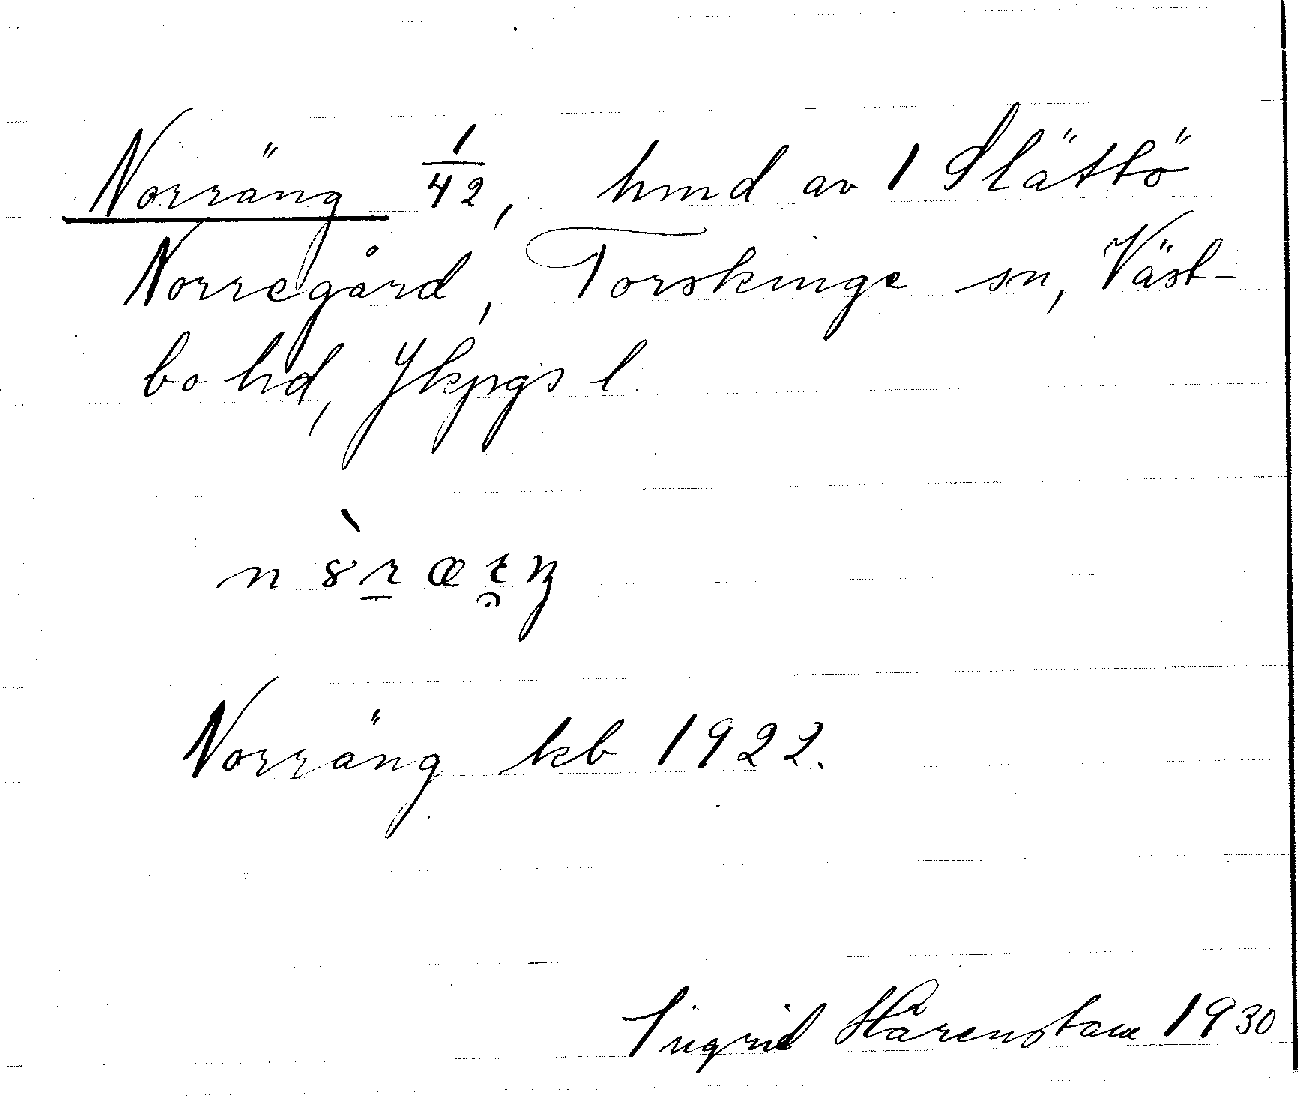 Norräng 1/42, hmd av 1 Slättö
Norregård, Torskinge sn, Väst-
bo hd, Jkpgs l
Norräng kb 1922.
Ingrid Hårenstam 1930